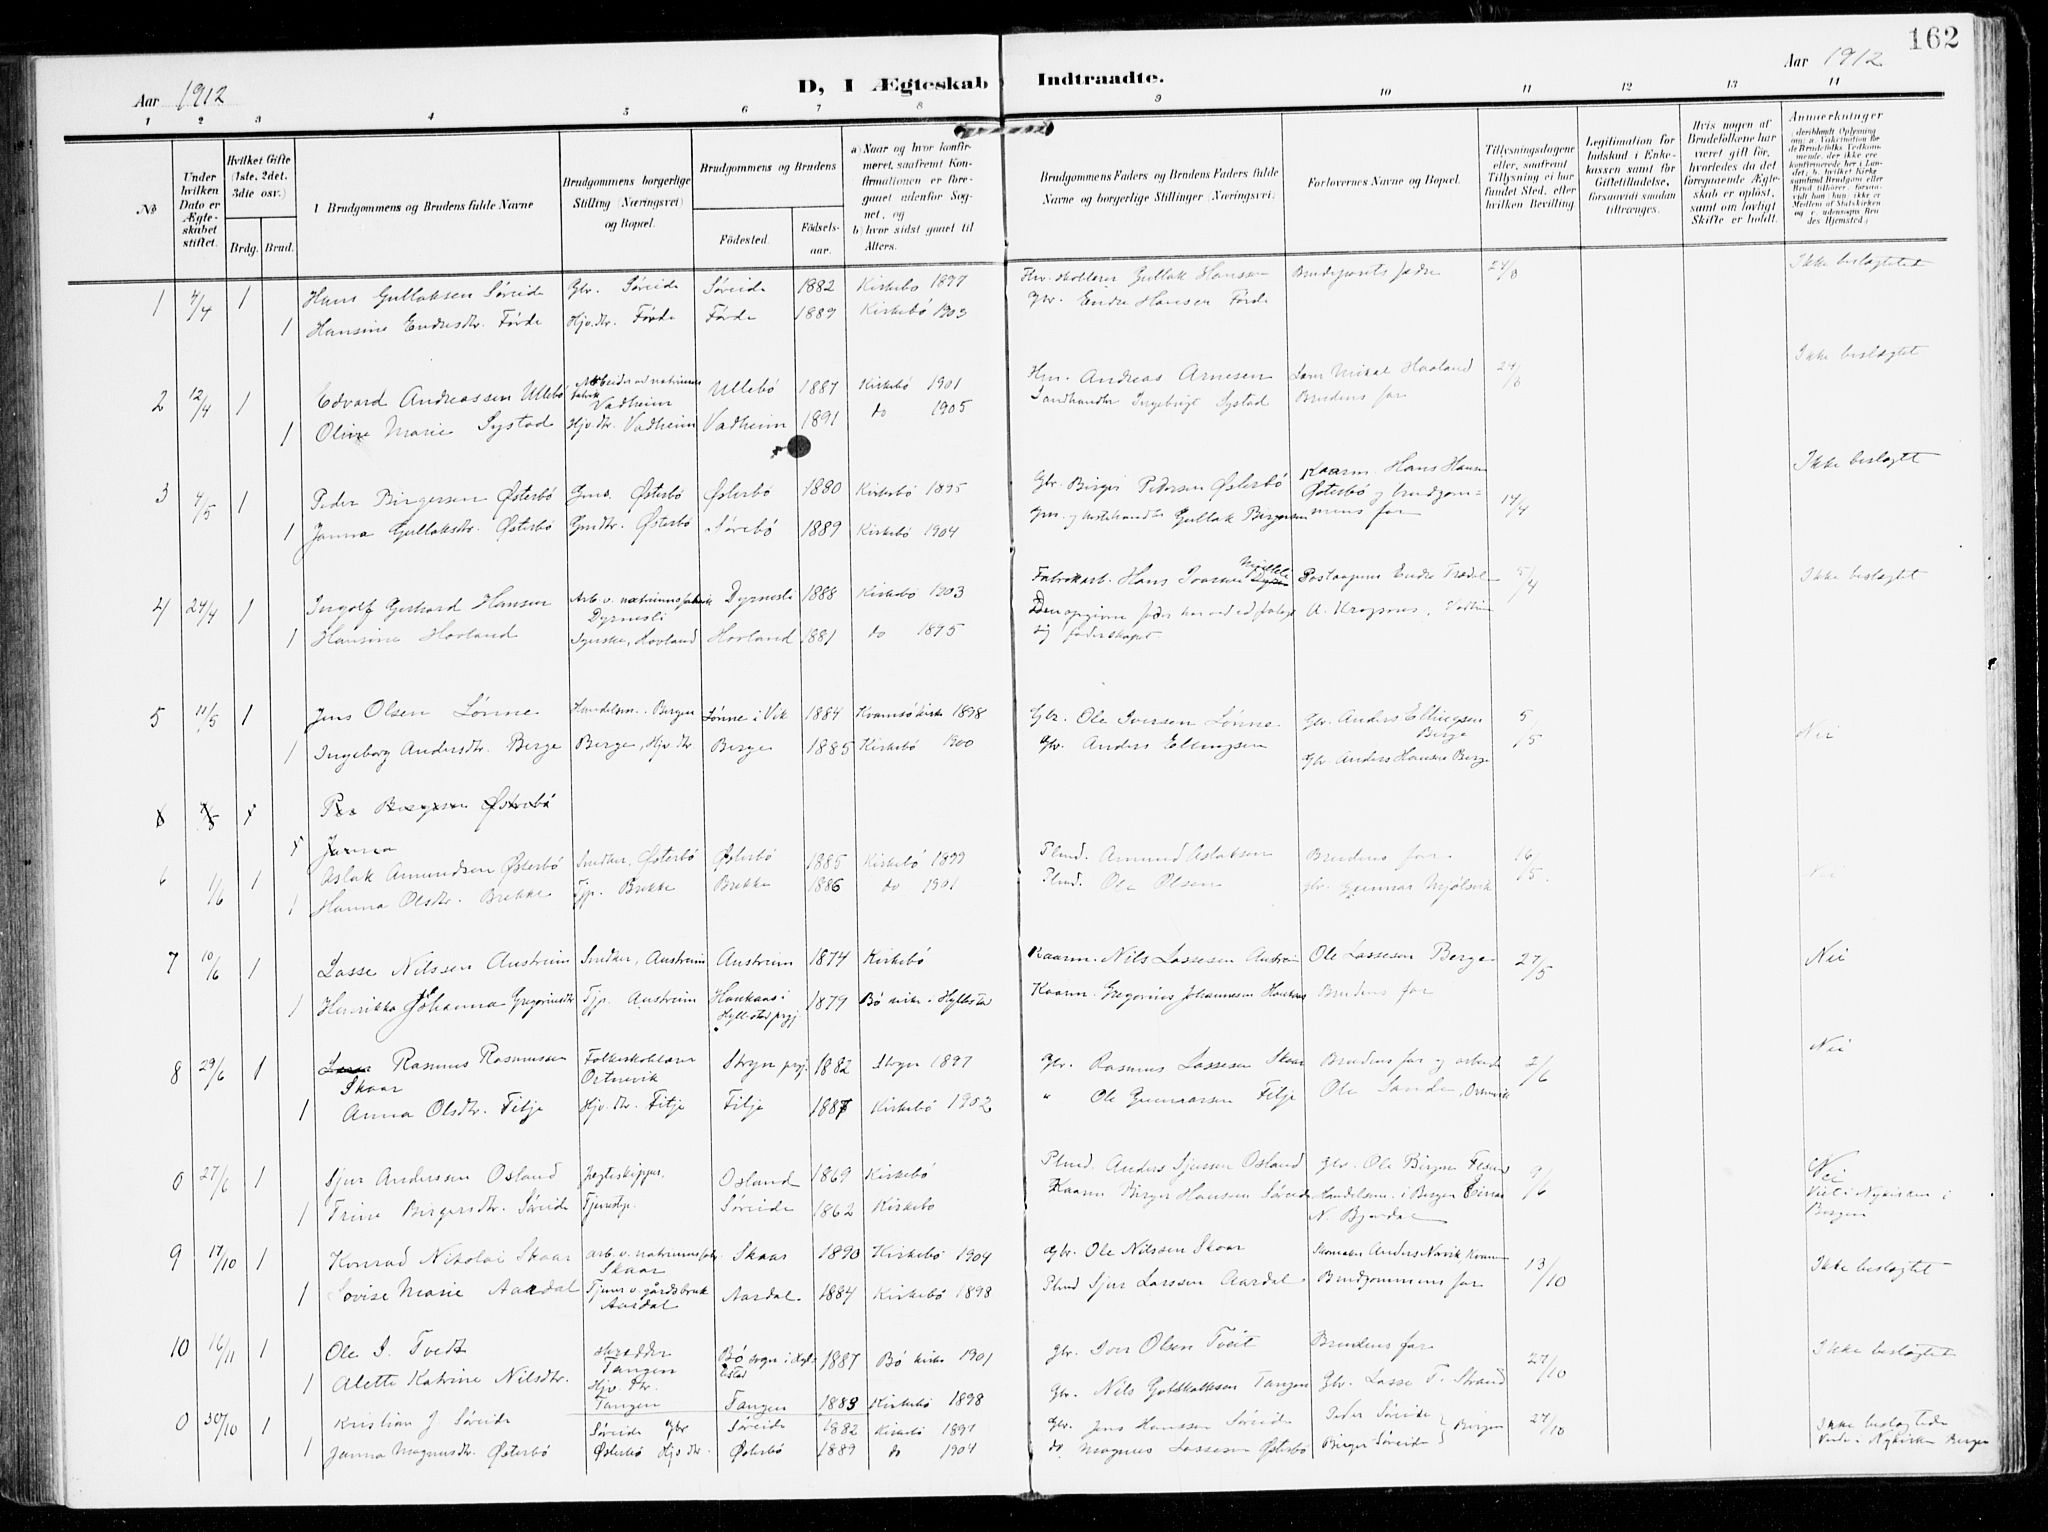 162
Aar 1912
D, I Ægteskab Indtraadte.
Aar 1912
1 2 3 4 5 6 7 8 9 10 11 12 13 14
No
Under hvilken Dato er Ægteskabet stiftet.
Hvilket Gifte (1ste, 2det, 3die osv.)
Brdg. Brud.
Brudgommens og Brudens fulde Navne
Brudgommens borgerlige Stilling (Næringsvei) og Bopæl.
Brudgommens og Brudens
Födested. Födselsaar.
a) Naar og hvor konfirmeret, saafremt Konfirmationen er foregaaet udenfor Sognet, og
b) hvor sidst gaaet til Alters.
Brudgommens Faders og Brudens Faders fulde Navne og borgerlige Stillinger (Næringsvei.)
Forlovernes Navne og Bopæl.
Tillysningsdagene eller, saafremt Tillysning ei har fundet Sted, efter hvilken Bevilling
Legitimation for Indskud i Enkekassen samt for Giftetilladelse, forsaavidt saadan tiltrænges.
Hvis nogen af Brudefolkene har været gift før, hvorledes da det foregaaende Ægteskab er opløst, samt om lovligt Skifte er holdt.
Anmerkninger
1 4/4 1 Hans Gullaksen Søreide Gbr. Søreide Søreide 1882 Kirkebø 1897 Gullak Hanssen Brudeparets fædre 24/3 Ikke beslægtet
1 Hansine Endresdtr. Førde Hjv.dtr. Førde Førde 1889 Kirkebø 1903 Gbr. Endre Hansen Førde
2 12/4 1 Edvard Andreassen Ullebø Arbeider ved natriumsfabrik Vadheim Ullebø 1887 Kirkebø 1901 Andreas Arnesen Lars Mikal Hovland 24/3 Ikke beslægtet
1 Oline Marie Systad Hjv.dtr. Vadheim Vadheim 1891 do 1905 Landhandler Ingebrigt Systad Brudens far
3 4/5 1 Peder Birgersen Østerbø Gmd. Østerbø Østerbø 1880 Kirkebø 1895 Gbr. Birger Pedersen Østerbø Kaarm. Hans Hansen Østerbø og brudgommens far 14/4 Ikke beslægtet
1 Janna Gullaksdtr. Østerbø Gmdtr. Østerbø Sørebø 1889 Kirkebø 1904 Gullak Birgersen
4 24/4 1 Ingolf Gerhard Hansen Arb. v. natriumsfabrik Dyrnesli Dyrnesli 1888 Kirkebø 1903 Fabrikarb. Hans Iversen Postaapner Endre Trædal 5/4 Ikke beslægtet
1 Hansine Hovland Syerske, Hovland Hovland 1881 do 1895 Den opgivne far har vedtaget sig faderskapet A. Krossnes, Vadheim
5 11/5 1 Jens Olsen Lønne Handelsm. Bergen Lønne i Vik 1884 Kvamsø kirke 1898 Gbr. Ole Iversen Lønne Gbr. Anders Ellingsen Berge 5/5 Nei
1 Ingeborg Andersdtr. Berge Berge, Hjv.dtr Berge 1885 Kirkebø 1900 Gbr. Anders Ellingsen Gbr. Anders Hansen Berge
6 4/5 1 Per Birgersen Østerbø
1 Janna
6 1/6 1 Aslak Amundsen Østerbø Snedker, Østerbø Østerbø 1885 Kirkebø 1899 Plmd. Amund Aslaksen Brudens far 16/5 Nei
1 Hanna Olsdtr. Brekke Tjp. Brekke Brekke 1886 do 1901 Plmd. Ole Olsen Gbr. Gunnar Mjølsvik
7 10/6 1 Lasse Nilssen Austreim Snedker, Austreim Austreim 1874 Kirkebø Kaarm. Nils Lassesen Austreim Ole Lassesen Berge 27/5 Nei
1 Henrikka Johanna Gregoriusdtr Tjp. Austreim Haukaas i Hyllestad prgj 1879 Bø kirke i Hyllestad Kaarm. Gregorius Johannesen Haukaas Brudens far
8 29/6 1 Rasmus Rasmussen Skaar Folkeskolelærer Ortnevik Stryn prgj. 1882 Stryn 1897 Gbr. Rasmus Lassesen Skaar Brudens far og arbeider Ole Sande, Ortnevik 2/6 Nei
1 Anna Olsdtr. Fitje Hjv.dtr. Fitje Fitje 1887 Kirkebø 1902 " Ole Gunnarsen Fitje
0 27/6 1 Sjur Anderssen Osland Jægteskipper Osland 1869 Kirkebø Plmd. Anders Sjursen Osland Gbr. Ole Birgersen 9/6 Nei
1 Trine Birgersdtr. Søreide Tjenestpe. Søreide 1862 Kirkebø Kaarm Birger Hansen Søreide Handelsm. i Bergen Einar N. Bjordal Viet i Nykirken i Bergen
9 17/10 1 Konrad Nikolai Skaar Arb. v. natriumsfabr. Skaar Skaar 1890 Kirkebø 1904 Gbr. Ole Nilssen Skaar Skomaker Anders Nævik, Kvamm 13/10 Ikke beslægtet
1 Lovise Marie Aardal Tjener v. gårdsbruk Aardal Aardal 1884 Kirkebø 1898 Plmd Sjur Larssen Aardal Brudgommens far
10 16/11 1 Ole I. Tvedt skrædder Tangen Bø sogn i Hyllestad 1887 Bø kirke 1901 Gbr. Iver Olsen Tveit Brudens far 27/10 Ikke beslægtet
1 Alette Katrine Nilsdtr. Hjv. dtr. Tangen Tangen 1883 Kirkebø 1898 Gbr. Nils Gotskalksen Tangen Gbr. Lasse T. Strand
0 30/10 1 Kristian J. Søreide Søreide Gbr Søreide 1882 Kirkebø 1897 Gbr. Jens Hanssen Søreide Peder Søreide } Bergen 27/10 Ikke beslægtede
1 Janna Magnusdtr. Østerbø Østerbø Hjv dtr. Østerbø 1889 do 1904 do. Magnus Lassesen Østerbø Birger Søreide Viede i Nykirken Bergen